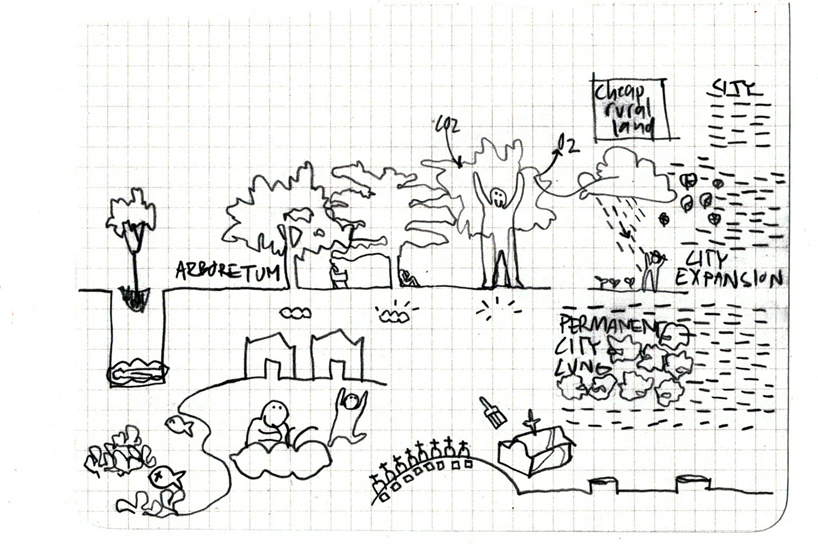 CO2
O2
Cheap
rural
land
SITY
ARBORETUM
CITY
EXPANSION
PERMANENT
CITY
LUNG